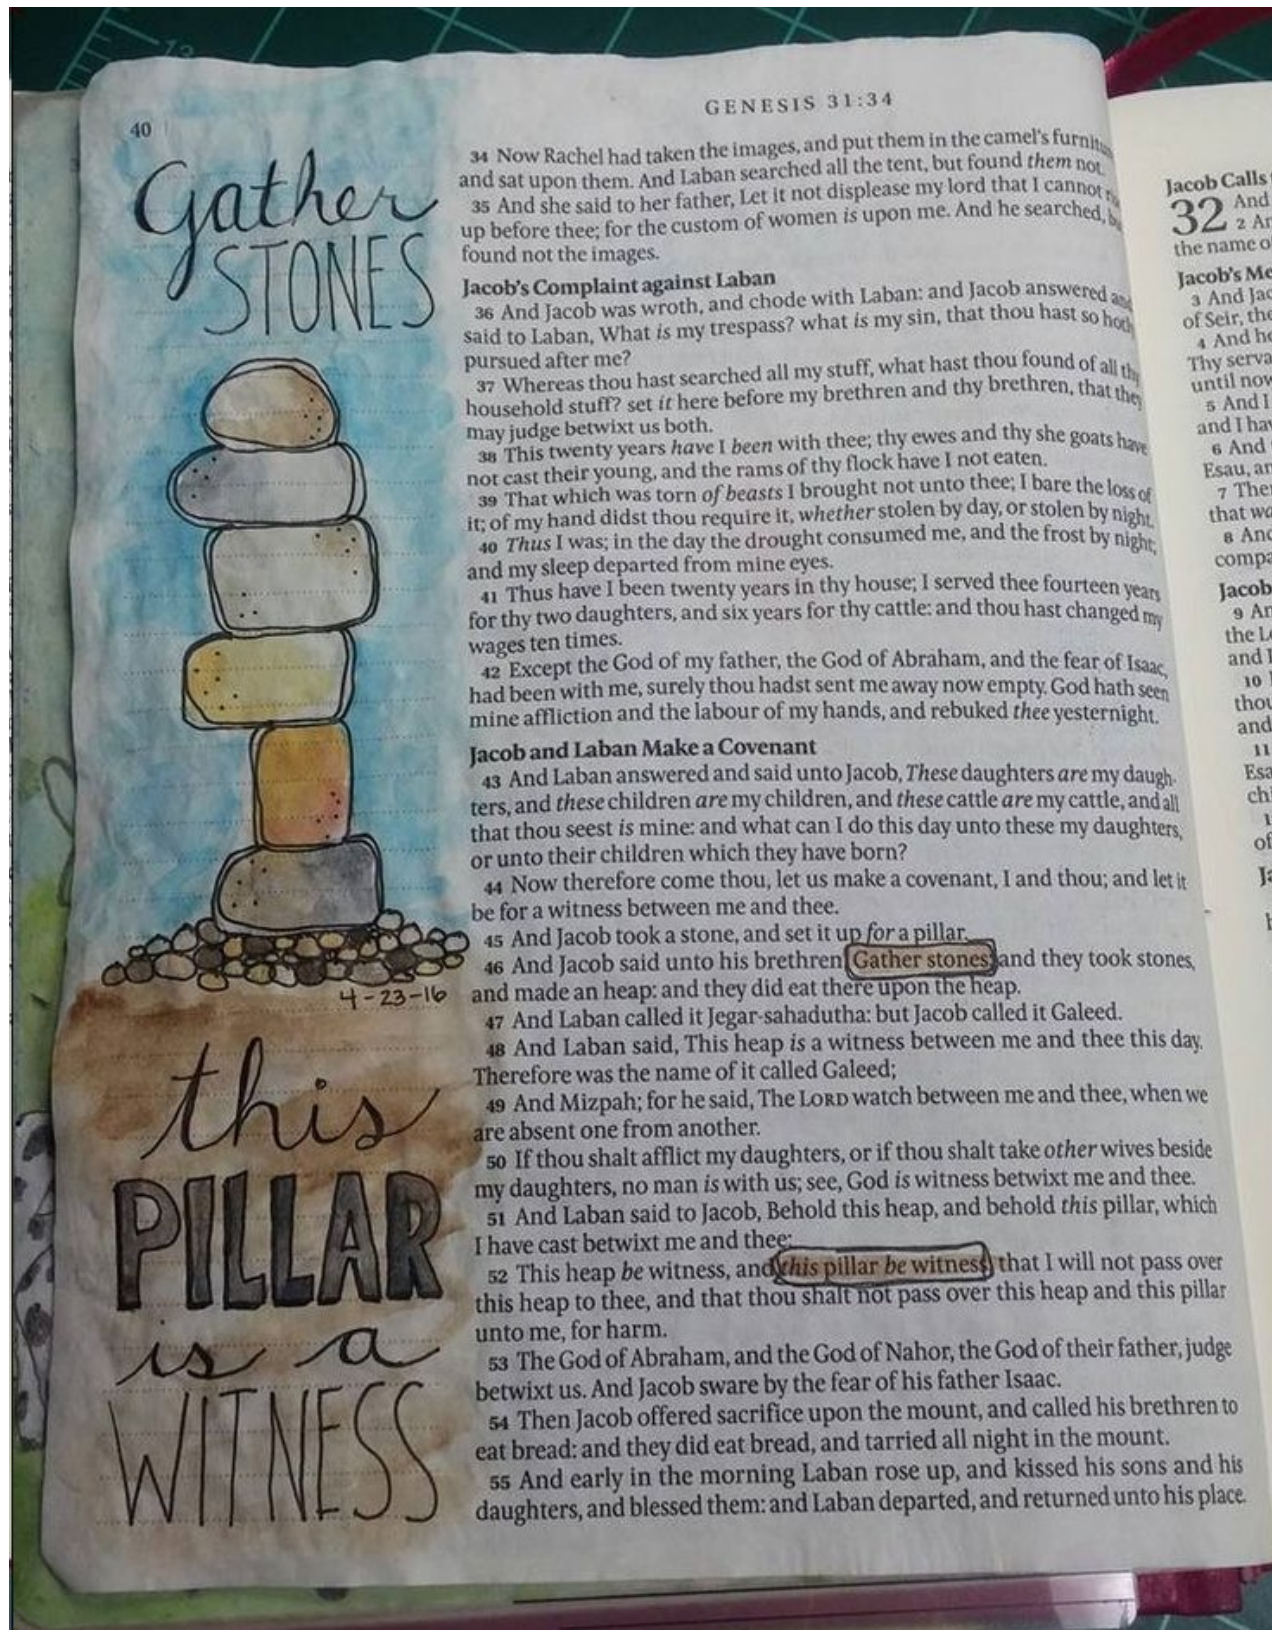 40
GENESIS 31:34
Gather
STONES
4-23-16
this
PILLAR
is a
WITNESS
34 Now Rachel had taken the images, and put them in the camel's
and sat upon them. And Laban searched all the tent, but found them not.
35 And she said to her father, Let it not displease my lord that I cannot
up before thee; for the custom of women is upon me. And he searched,
found not the images.
Jacob's Complaint against Laban
36 And Jacob was wroth, and chode with Laban: and Jacob answered and
said to Laban, What is my trespass? what is my sin, that thou hast so hotly
pursued after me?
37 Whereas thou hast searched all my stuff, what hast thou found of all thy
household stuff? set it here before my brethren and thy brethren, that they
may judge betwixt us both.
38 This twenty years have I been with thee; thy ewes and thy she goats have
not cast their young, and the rams of thy flock have I not eaten.
39 That which was torn of beasts I brought not unto thee; I bare the loss of
it; of my hand didst thou require it, whether stolen by day, or stolen by night.
40 Thus I was; in the day the drought consumed me, and the frost by night;
and my sleep departed from mine eyes.
41 Thus have I been twenty years in thy house; I served thee fourteen years
for thy two daughters, and six years for thy cattle: and thou hast changed my
wages ten times.
42 Except the God of my father, the God of Abraham, and the fear of Isaac,
had been with me, surely thou hadst sent me away now empty. God hath seen
mine affliction and the labour of my hands, and rebuked thee yesternight.
Jacob and Laban Make a Covenant
43 And Laban answered and said unto Jacob, These daughters are my daugh-
ters, and these children are my children, and these cattle are my cattle, and all
that thou seest is mine: and what can I do this day unto these my daughters,
or unto their children which they have born?
44 Now therefore come thou, let us make a covenant, I and thou; and let it
be for a witness between me and thee.
45 And Jacob took a stone, and set it up for a pillar.
46 And Jacob said unto his brethren Gather stones and they took stones,
and made an heap: and they did eat there upon the heap.
47 And Laban called it Jegar-sahadutha: but Jacob called it Galeed.
48 And Laban said, This heap is a witness between me and thee this day.
Therefore was the name of it called Galeed;
49 And Mizpah; for he said, The LORD watch between me and thee, when we
are absent one from another.
50 If thou shalt afflict my daughters, or if thou shalt take other wives beside
my daughters, no man is with us; see, God is witness betwixt me and thee.
51 And Laban said to Jacob, Behold this heap, and behold this pillar, which
I have cast betwixt me and thee:
52 This heap be witness, and this pillar be witness that I will not pass over
this heap to thee, and that thou shalt not pass over this heap and this pillar
unto me, for harm.
53 The God of Abraham, and the God of Nahor, the God of their father, judge
betwixt us. And Jacob sware by the fear of his father Isaac.
54 Then Jacob offered sacrifice upon the mount, and called his brethren to
eat bread: and they did eat bread, and tarried all night in the mount.
55 And early in the morning Laban rose up, and kissed his sons and his
daughters, and blessed them: and Laban departed, and returned unto his place.
Jacob Calls
32 And
2
the name
Jacob's
3 And
of Seir,
4 And
Thy
until now
5 And I
and I
6 And
Esau,
7
that
8
Jacob
9
the
and
10
and
11
of